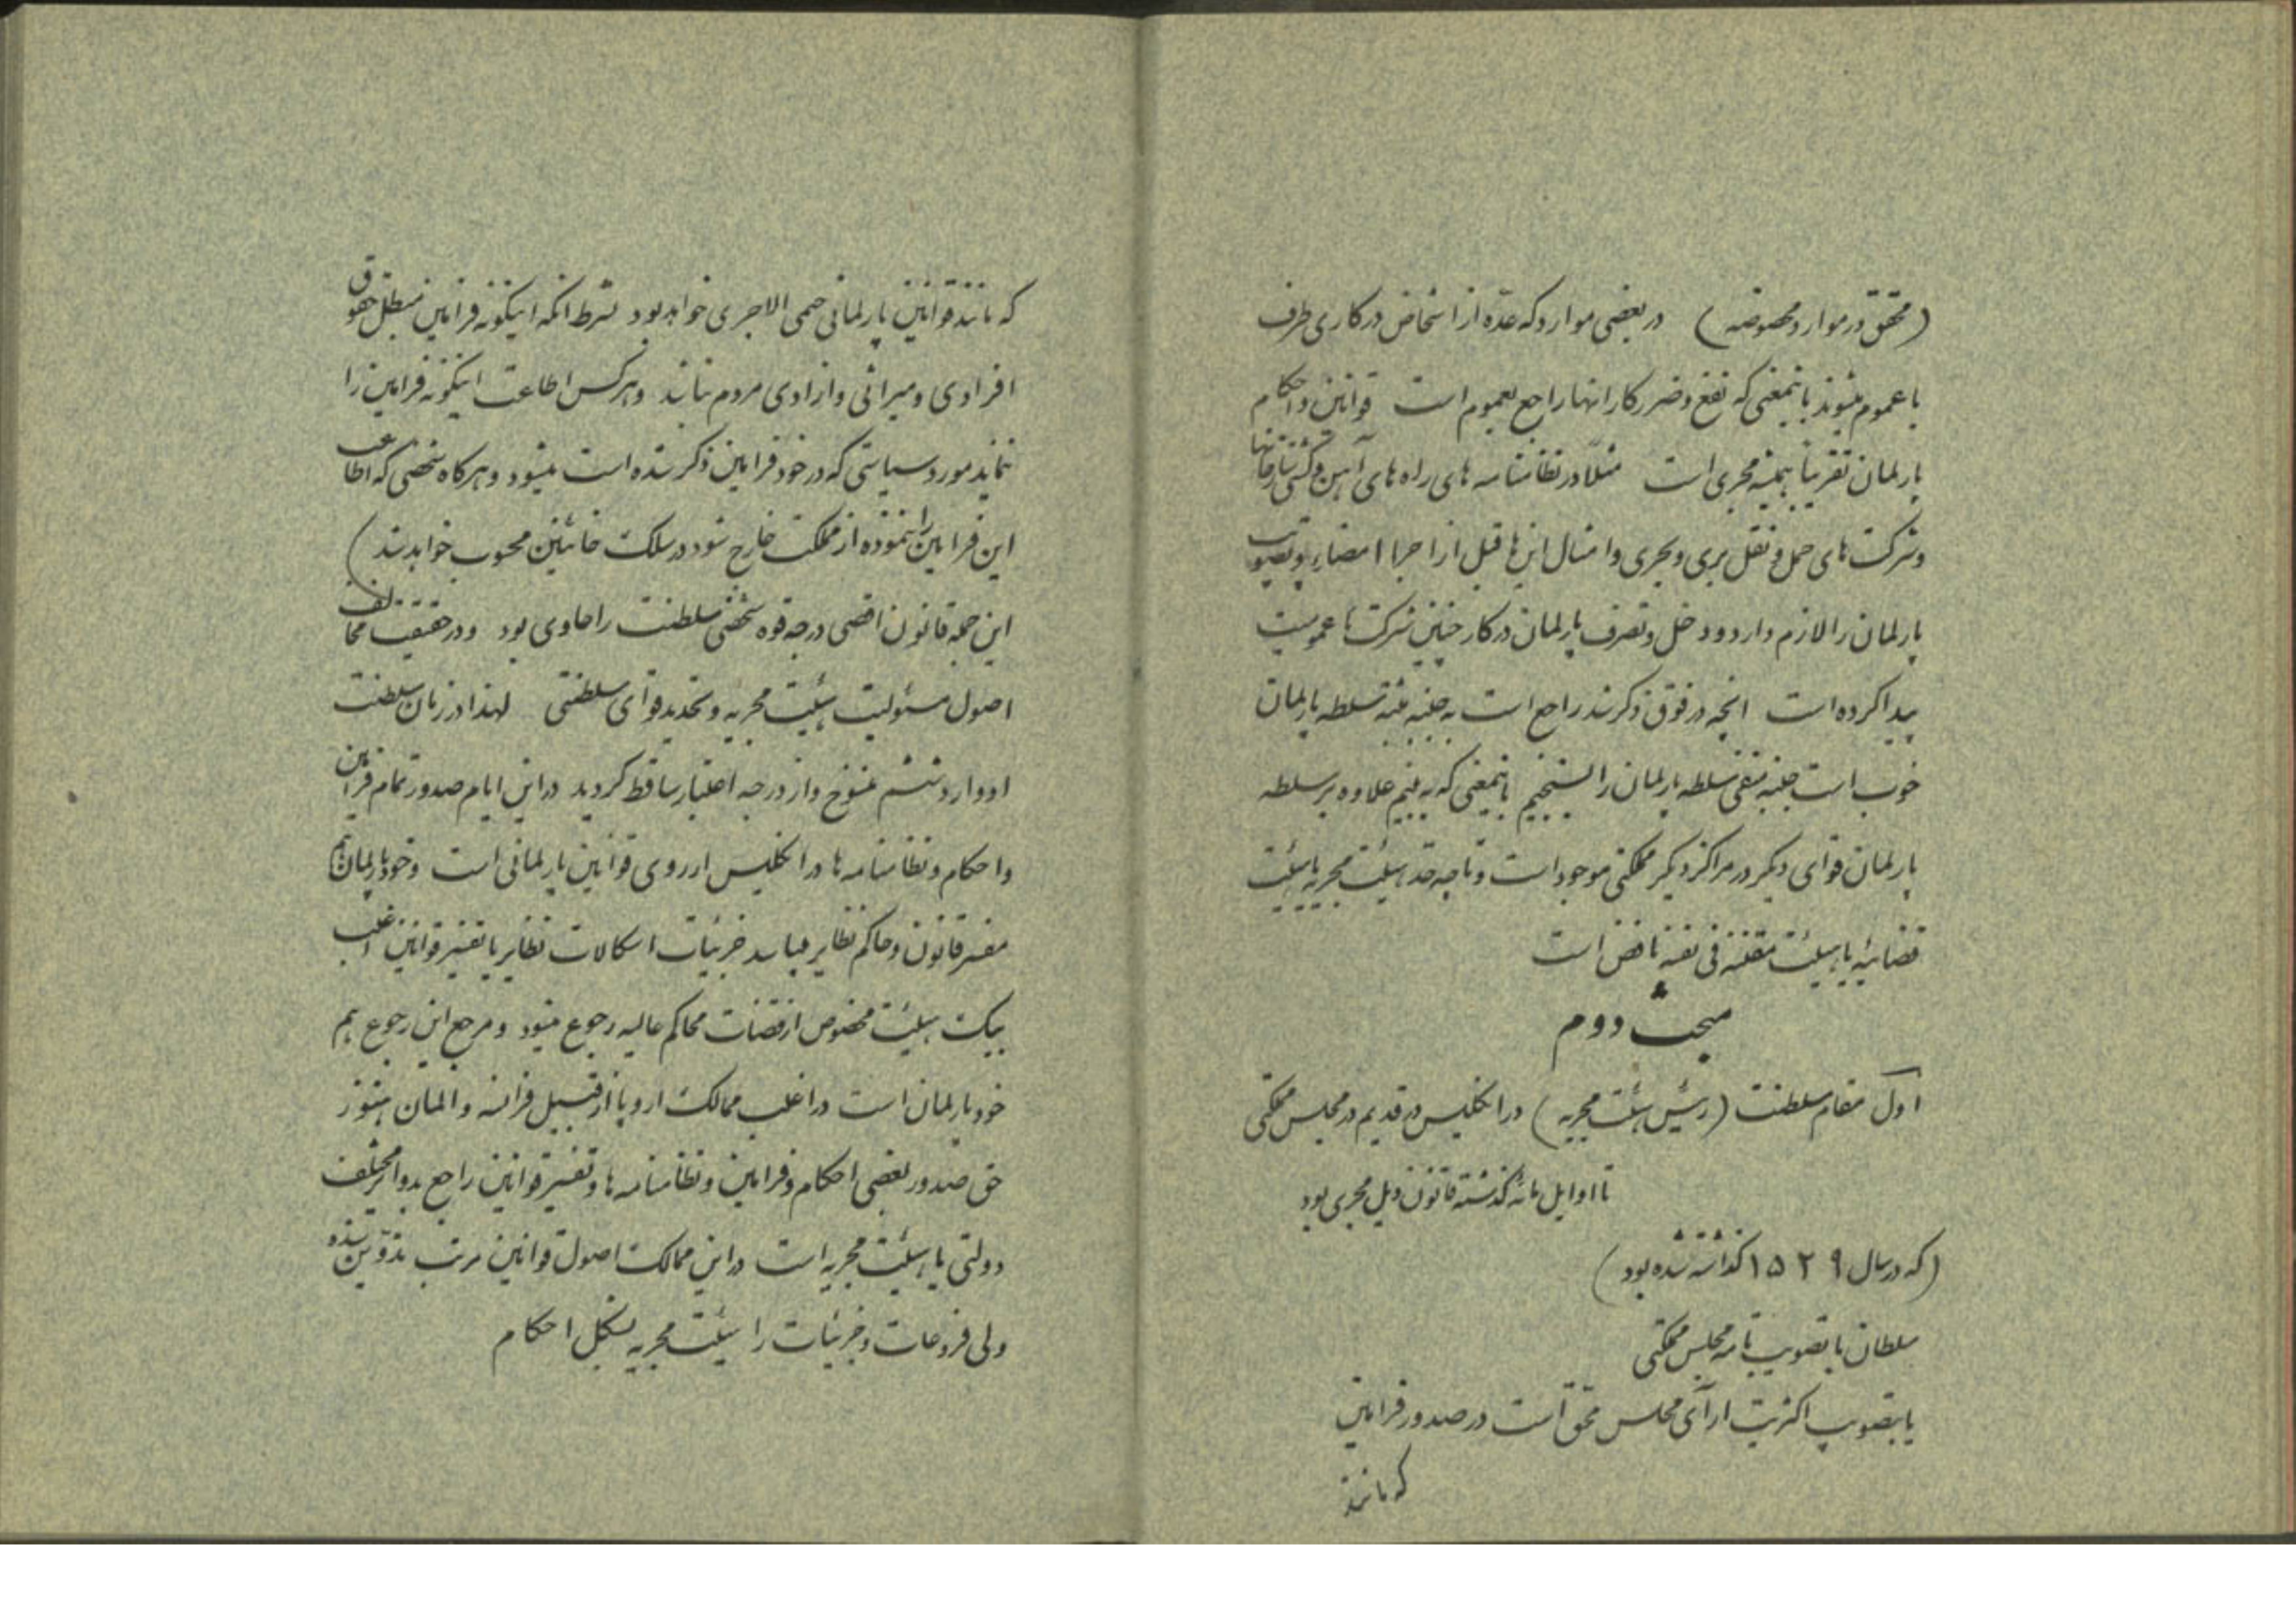 (محقق در موارد مخصوصه) در بعضی موارد که عدّه از اشخاص در کاری طرف
با عموم میشوند باینمعنی که نفع و ضرر کار انها راجع بعموم است قوانین و احکام
پارلمان تقریباً همیشه مجری است مثلاً در نظامنامه های راه های آهن و کشتی
و شرکت های حمل و نقل بری و بحری و امثال این ها قبل از اجرا امضاء و تصویب
پارلمان را لازم دارد و دخل و تصرف پارلمان در کار چنین شرکت ها عمومیت
پیدا کرده است انچه در فوق ذکر شد راجع است به جنبه مثبته تسلطه پارلمان
خوب است جنبه منفی سلطه پارلمان را بسنجیم باینمعنی که به بینیم علاوه بر سلطه
پارلمان قوای دیگر در مراکز دیگر مملکتی موجود است و تا چه حد هیئت مجریه یا هیئت
قضائیه یا هیئت مقننه فی نفسه ناقض است
مبحث دوم
اول مقام سلطنت (رئیس هیئت مجریه) در انگلیس در قدیم در مجلس مملکتی
تا اوایل مائه گذشته قانون ذیل مجری بود
(که در سال ۱۵۲۹ گذاشته شده بود)
سلطان با تصویب تامه مجلس مملکتی
یا بتصویب اکثریت ارآی مجلس محق است در صدور فرامین
که مانند
که مانند قوانین پارلمانی حتمی الاجری خواهد بود بشرط انکه اینگونه فرامین مبطل حقوق
افرادی و میراثی و ازادی مردم نباشد و هر کس اطاعت اینگونه فرامین را
ننماید مورد سیاستی که در خود فرامین ذکر شده است میشود و هرگاه شخصی که اطاعت
این فرامین را ننموده از مملکت خارج شود در سلک خائنین محسوب خواهد شد)
این جمله قانون اقصی درجه قوه شخصی سلطنت را حاوی بود و در حقیقت مخالف
اصول مسئولیت هیئت مجریه و تحدید قوای سلطنتی لهذا در زمان سلطنت
ادوارد ششم منسوخ و از درجه اعتبار ساقط گردید در این ایام صدور تمام فرامین
و احکام و نظامنامه ها در انگلیس از روی قوانین پارلمانی است و خود پارلمان هم
مفسر قانون و حاکم نظایر میباشد جزئیات اشکالات نظایر یا تفسیر قوانین اغلب
بیک هیئت مخصوص از قضات محاکم عالیه رجوع میشود و مرجع این رجوع هم
خود پارلمان است در اغلب ممالک اروپا از قبیل فرانسه و المان هنوز
حق صدور بعضی احکام و فرامین و نظامنامه ها و تفسیر قوانین راجع بدوایر مختلف
دولتی یا هیئت مجریه است در این ممالک اصول قوانین مرتب تدوین شده
ولی فروعات و جزئیات را هیئت مجریه بشکل احکام